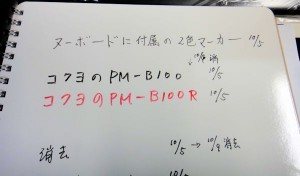 ヌーボードに付属の2色マーカー 10/5
↓10/9 消
コクヨのPM-B100 10/5
コクヨのPM-B100R 10/5
消去 10/5 → 10/9 消去
10/5